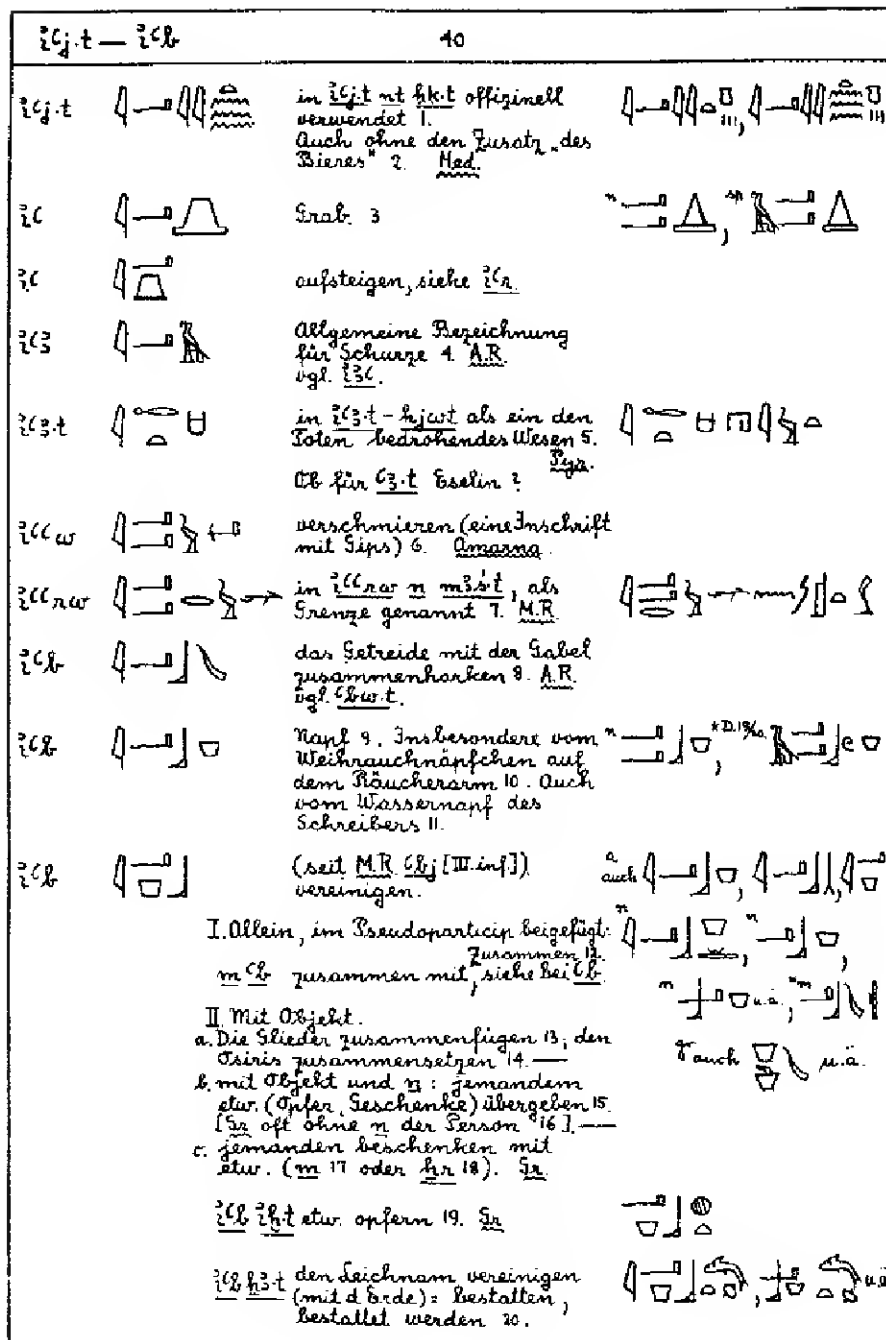 ꞽꜥj.t — ꞽꜥb 40
ꞽꜥj.t in ꞽꜥj.t nt ḥḳ.t offizinell
verwendet 1.
Auch ohne den Zusatz „des
Bieres" 2. Med.
ꞽꜥ Grab. 3
ꞽꜥ aufsteigen, siehe ꞽꜥr.
ꞽꜥꜣ Allgemeine Bezeichnung
für Schurze 4. A.R.
vgl. ꞽꜣꜥ.
ꞽꜥꜣ.t in ꞽꜥꜣ.t - hjwt als ein den
Toten bedrohendes Wesen 5.
Pyr.
Ob für ꜥꜣ.t Eselin?
ꞽꜥꜥw verschmieren (eine Inschrift
mit Gips) 6. Amarna.
ꞽꜥꜥrw in ꞽꜥꜥrw n mꜣś.t, als
Grenze genannt 7. M.R
ꞽꜥb das Getreide mit der Gabel
zusammenharken 8. A.R.
vgl. ꜥbw.t.
ꞽꜥb Napf 9. Insbesondere vom
Weihrauchnäpfchen auf
dem Räucherarm 10. Auch
vom Wassernapf des
Schreibers 11.
ꞽꜥb (seit M.R. ꜥbj [III. inf.]) auch
vereinigen.
I. Allein, im Pseudoparticip beigefügt:
Zusammen 12.
m ꜥb zusammen mit, siehe bei ꜥb. u.ä.
II. Mit Objekt.
a. Die Glieder zusammenfügen 13; den
Osiris zusammensetzen 14. — auch u.ä.
b. mit Objekt und n: jemandem
etw. (Opfer, Geschenke) übergeben 15.
[Gr. oft ohne n der Person 16]. —
c. jemanden beschenken mit
etw. (m 17 oder ḥr 18). Gr.
ꞽꜥb ꞽḫ.t etw. opfern 19. Gr.
ꞽꜥb ẖꜣ.t den Leichnam vereinigen u.ä
(mit d Erde): bestatten,
bestattet werden 20.